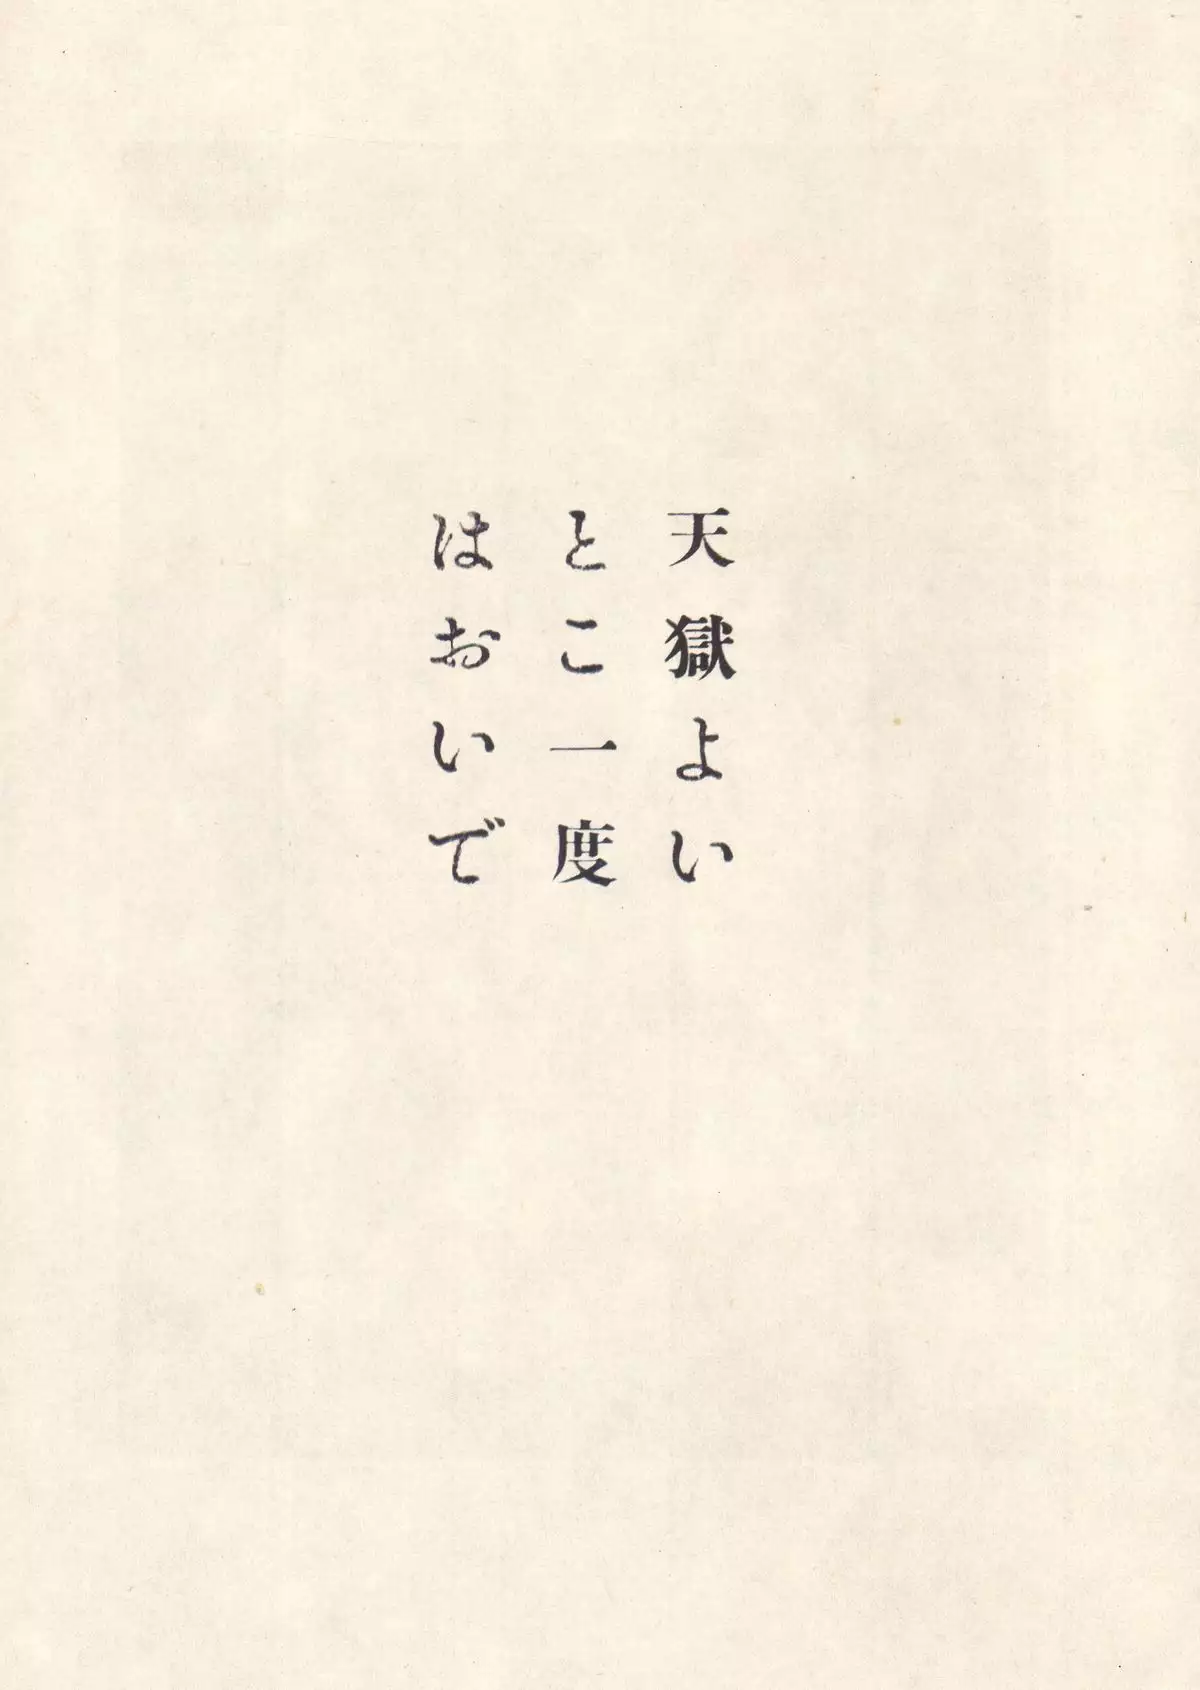 天獄よい
とこ一度
はおいで